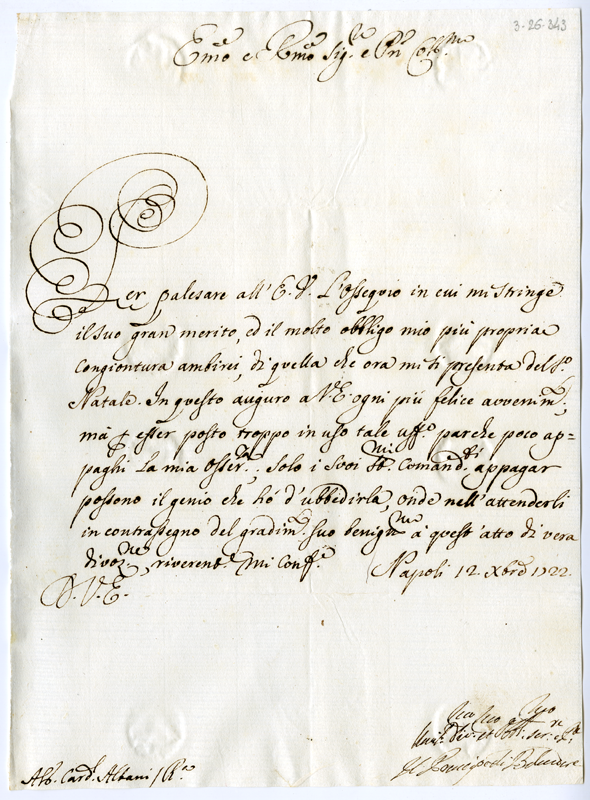 3-26-343
Em.o e Rmo Sig.re e Pn Coll.mo
Per palesare all'E. V. L'ossequio in cui mi stringe
il suo gran merito, ed il molto obbligo mio più propria
congiontura ambirei, di quella che ora mi si presenta del S.o
Natale. In questo auguro a V.E. ogni più felice avvenim.to;
mà p esser posto troppo in uso tale uff.o parche poco ap=
paghi la mia osser.za; solo i suoi st.mi Comand.ti appagar
possono il genio che hó d'ubbedirla, onde nell'attenderli
in contrassegno del gradim.to suo benig.mo à quest'atto di vera
divoz.ne, riverent.e mi conf.o Napoli 12. Xbre 1722.
D. V. E.
Um.o Dev.et Obb. ser.re
Il Principe di Belvedere
Alb. Card. Albani / R.a